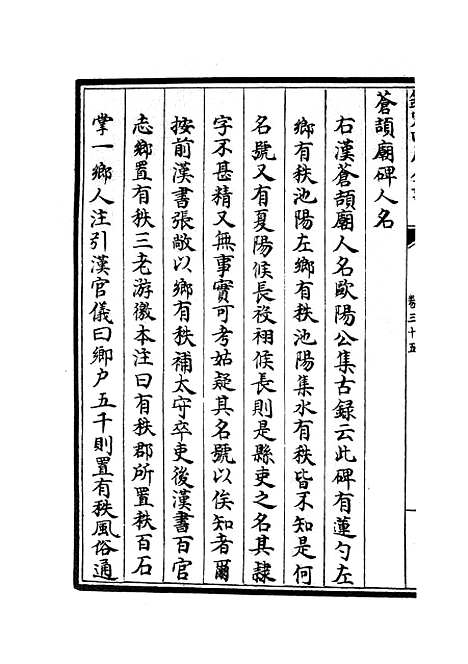 蒼頡廟碑人名
右漢蒼頡廟人名歐陽公集古録云此碑有蓮勺左
鄉有秩池陽左鄉有秩池陽集水有秩皆不知是何
名號又有夏陽候長祋祤候長則是縣吏之名其隷
字不甚精又無事實可考姑疑其名號以俟知者爾
按前漢書張敞以鄉有秩補太守卒吏後漢書百官
志鄉置有秩三老游徼本注曰有秩郡所置秩百石
掌一鄉人注引漢官儀曰鄉户五千則置有秩風俗通
卷三十五